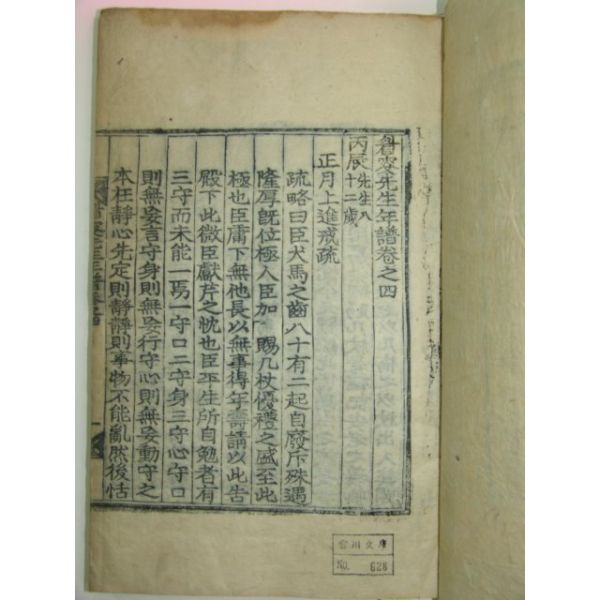 睂叟先生年譜卷之四
丙辰 先生八
十二歲
正月上進戒疏
疏略曰臣犬馬之齒八十有二起自廢斥殊遇
隆厚旣位極人臣加 賜几杖優禮之盛至此
極也臣庸下無他長以無事得年壽請以此告
殿下此微臣獻芹之忱也臣平生所自勉者有
三守而未能一焉一守口二守身三守心守口
則無妄言守身則無妄行守心則無妄動守之
本在靜心先定則靜靜則事物不能亂然後恬
川文庫
No. 628